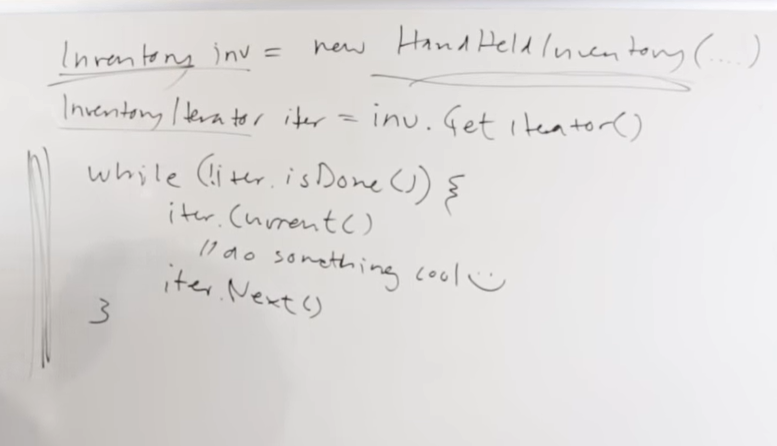 Inventory inv = new HandHeldInventory(....)
InventoryIterator iter = inv.Getiteator()
while (!iter.isDone()) {
iter.Current()
//do something cool
iter.Next()
}